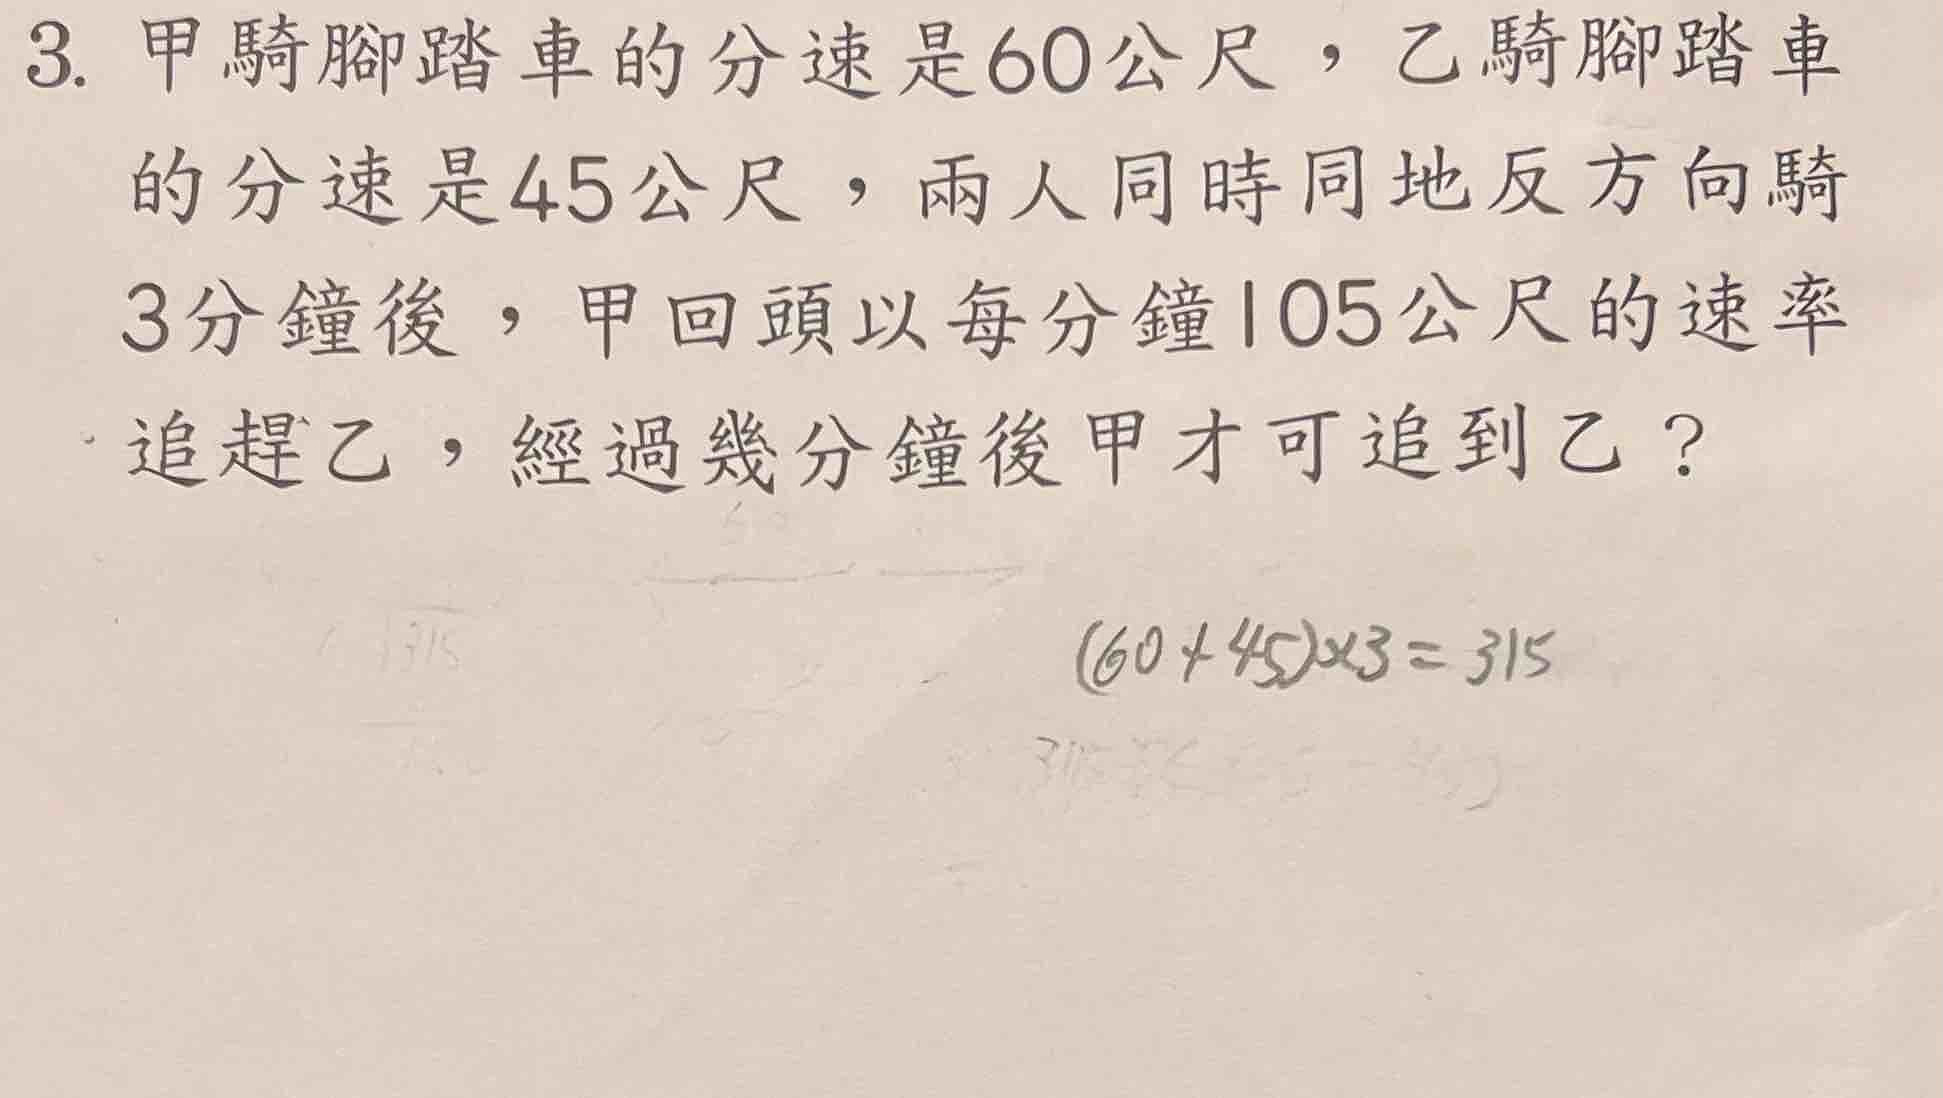 3. 甲騎腳踏車的分速是60公尺，乙騎腳踏車
的分速是45公尺，兩人同時同地反方向騎
3分鐘後，甲回頭以每分鐘105公尺的速率
追趕乙，經過幾分鐘後甲才可追到乙？
(60+45)×3=315
315